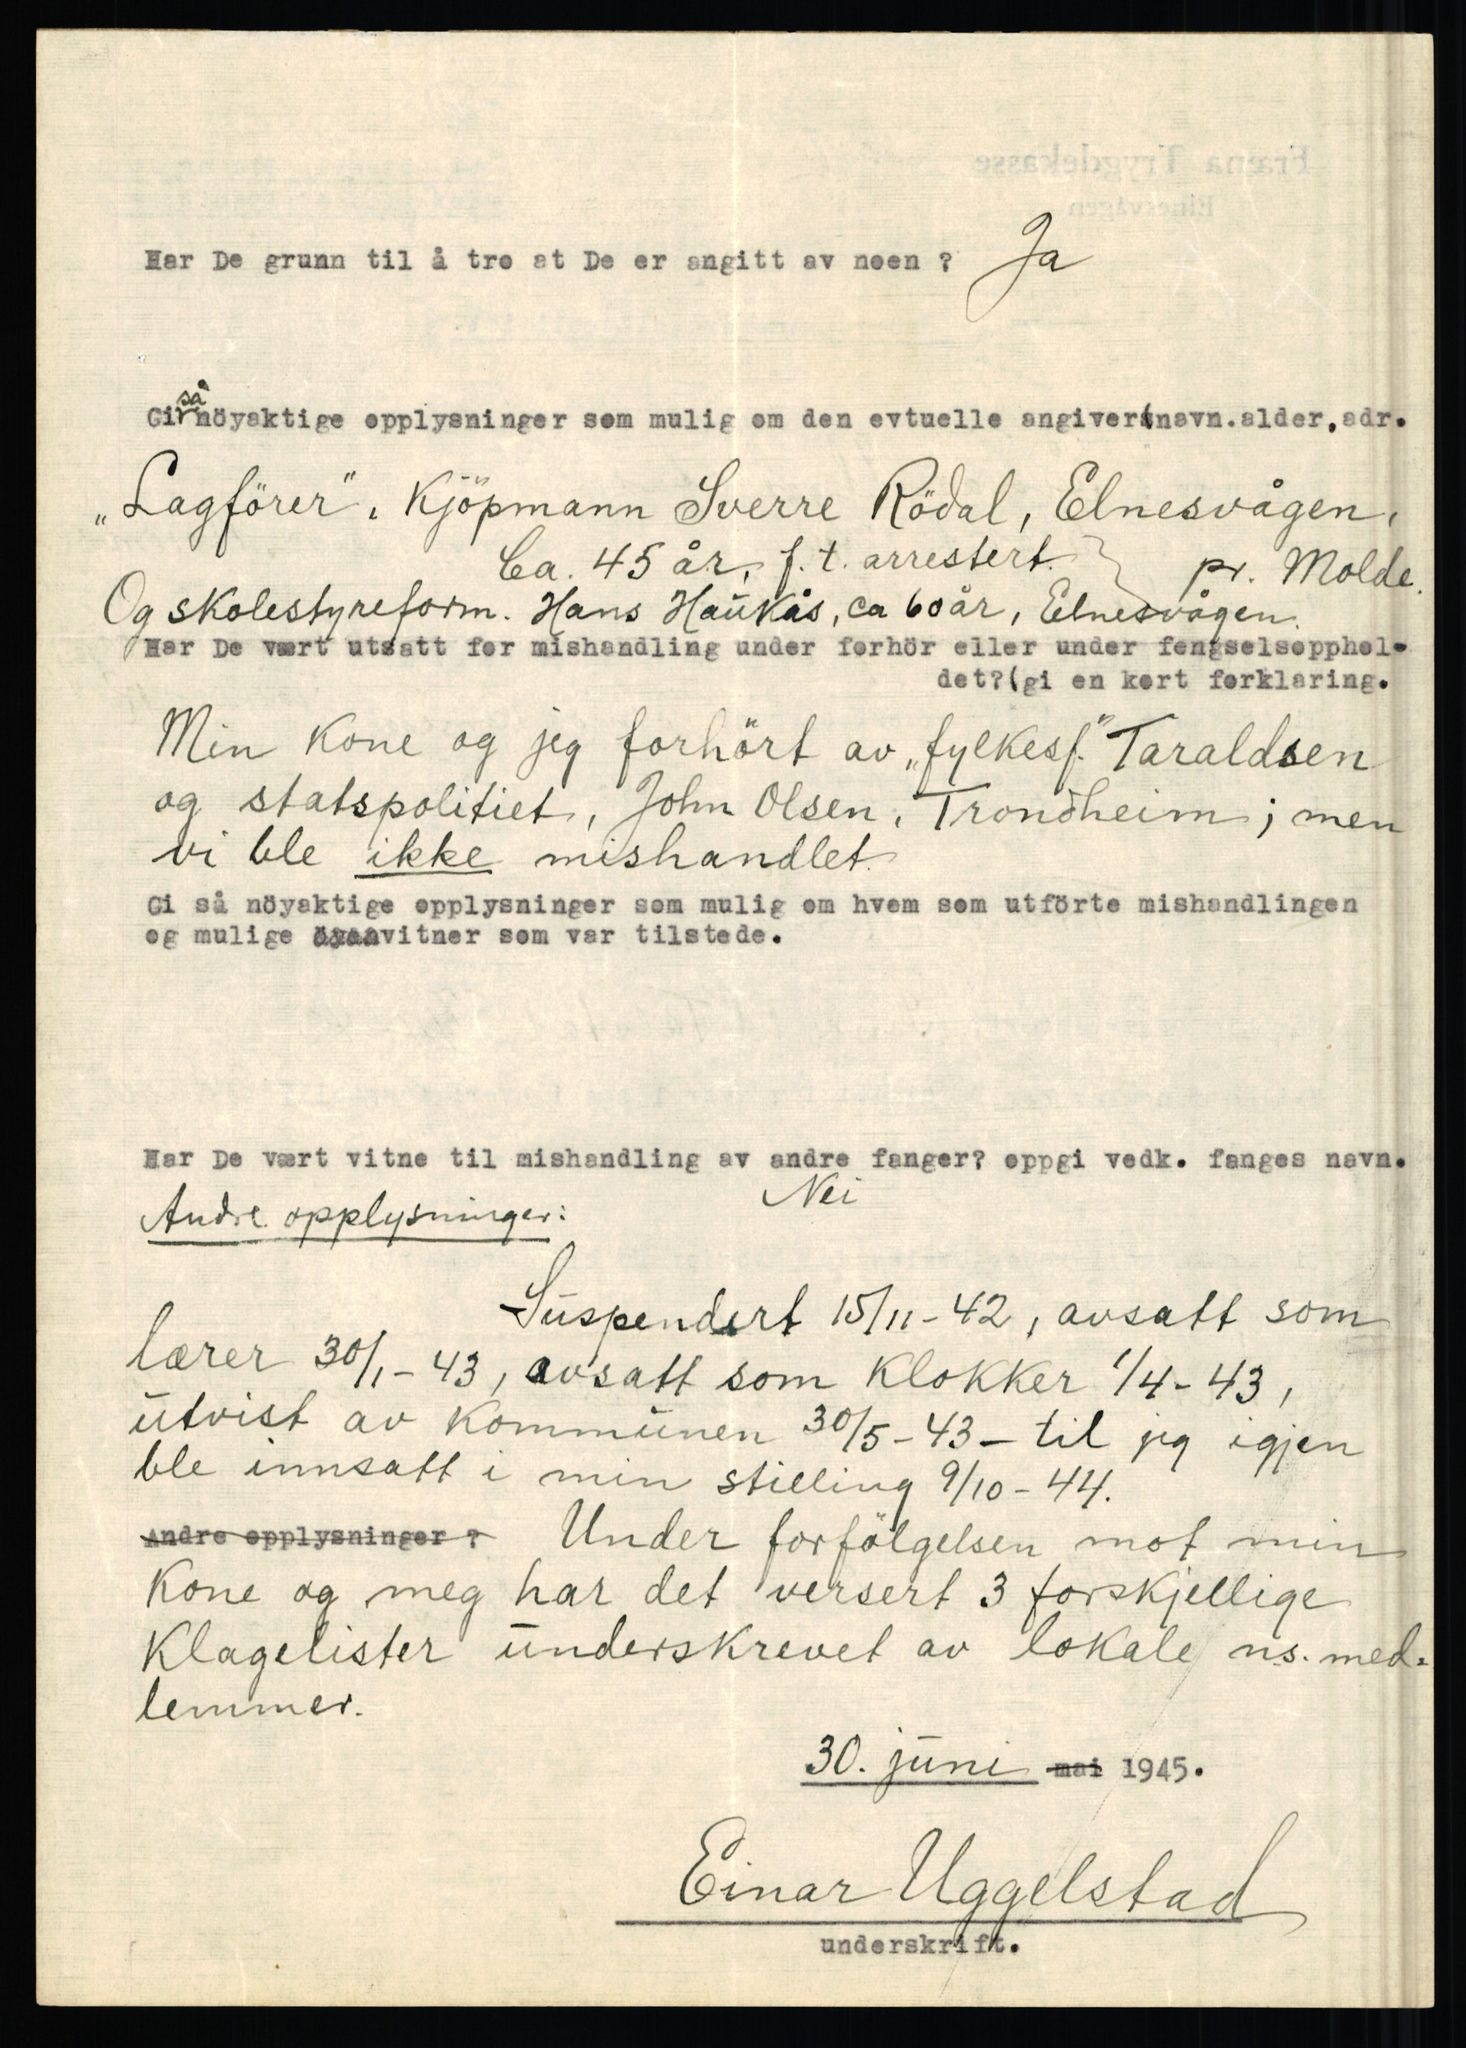 Har De grunn til å tro at De er angitt av noen ? Ja
så
Gi nöyaktige opplysninger som mulig om den evtuelle angiver(navn.alder.adr.
„Lagförer", Kjöpmann Sverre Rödal, Elnesvågen,
Ca. 45 år, f. t. arrestert. pr. Molde.
Og skolestyreform. Hans Haukås, ca 60 år, Elnesvågen.
Har De vært utsatt for mishandling under forhör eller under fengselsopphol-
det?(gi en kort forklaring.
Min kone og jeg forhört av „fylkesf." Taraldsen
og statspolitiet, John Olsen, Trondheim; men
vi ble ikke mishandlet.
Gi så nöyaktige opplysninger som mulig om hvem som utförte mishandlingen
og mulige vitner som var tilstede.
Har De vært vitne til mishandling av andre fanger? oppgi vedk. fanges navn.
Nei
Andre opplysninger:
Suspendert 15/11-42, avsatt som
lærer 30/1-43, avsatt som klokker 1/4-43,
utvist av kommunen 30/5-43 - til jeg igjen
ble innsatt i min stilling 9/10-44.
Andre opplysninger ? Under forfölgelsen mot min
kone og meg har det versert 3 forskjellige
klagelister underskrevet av lokale n.s. med-
lemmer.
30. juni mai 1945.
Einar Uggelstad
underskrift.